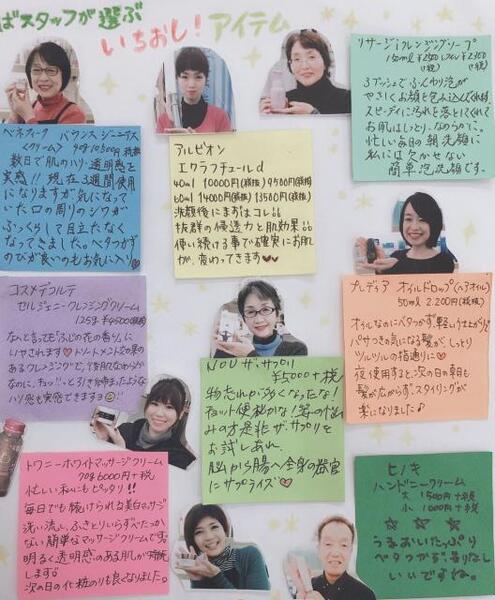 ばスタッフが選ぶ
いちおし！アイテム
ベネフィーク バウンスジーニアス
<クリーム>
数日で肌のハリ・透明感を
実感!! 現在3週間使用
になりますが、気になって
いた口の周りのシワが
ふっくらして目立たなく
なってきました。ベタつかず
のびが良いのもお気に入り♡
アルビオン
エクラフチュールd
40ml 10000円(税抜) 9500円(税抜)
60ml 14000円(税抜) 13500円(税抜)
洗顔後にまずはコレ品
抜群の浸透力と肌効果品
使い続ける事で確実にお肌
が、変わってきます♥♥
リサージ クレンジングソープ
3プッシュでふんわり泡が
やさしくお顔を包み込んでくれます
スピーディに汚れを落としてくれて
お肌はしっとり、なめらかで。
忙しい毎日の朝洗顔に
私には欠かせない
簡単泡洗顔です。
コスメデコルテ
セルジェニー クレンジングクリーム
なんと言っても「ふじの花の香り」に
いやされます♡トリートメント効果の
ハリ感も実感できますョ
NOUザ・サプリ
¥5000+税
物忘れが多くなったな!
お試しあれ
脳から腸へ全身の器官
にサプライズ♥
プレディア オイルドロップ(ヘアオイル)
50ml 2,200円(税抜)
オイルなのにベタつかず、軽い仕上がり!
パサつきの気になる髪が、しっとり
ツルツルの指通りに♡
夜使用すると、次の日の朝も
髪が広がらず、スタイリングが
楽になりました♪
トワニーホワイトマッサージクリーム
忙しい私にもピッタリ!!
毎日でも続けられる美白マッサージ
洗い流し、ふきとりいらずでべたつか
ない簡単なマッサージクリームです。
明るく透明感のある肌が持続
します
次の日の化粧のりも良くなりました。
ヒノキ
ハンドニークリーム
大 1500円+税
小 1000円+税
☆ ☆ ☆
うるおいたっぷり
ベタつかず、香りなし
いいですね。